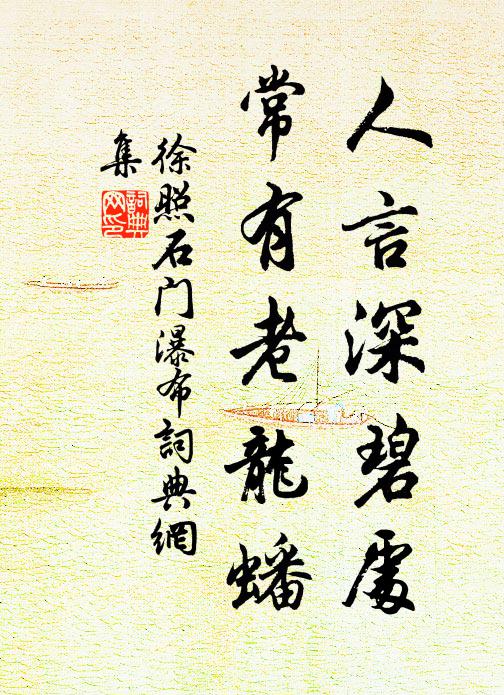 人言深碧處
常有老龍蟠
徐照石门瀑布詞典網
集
詞典
网印